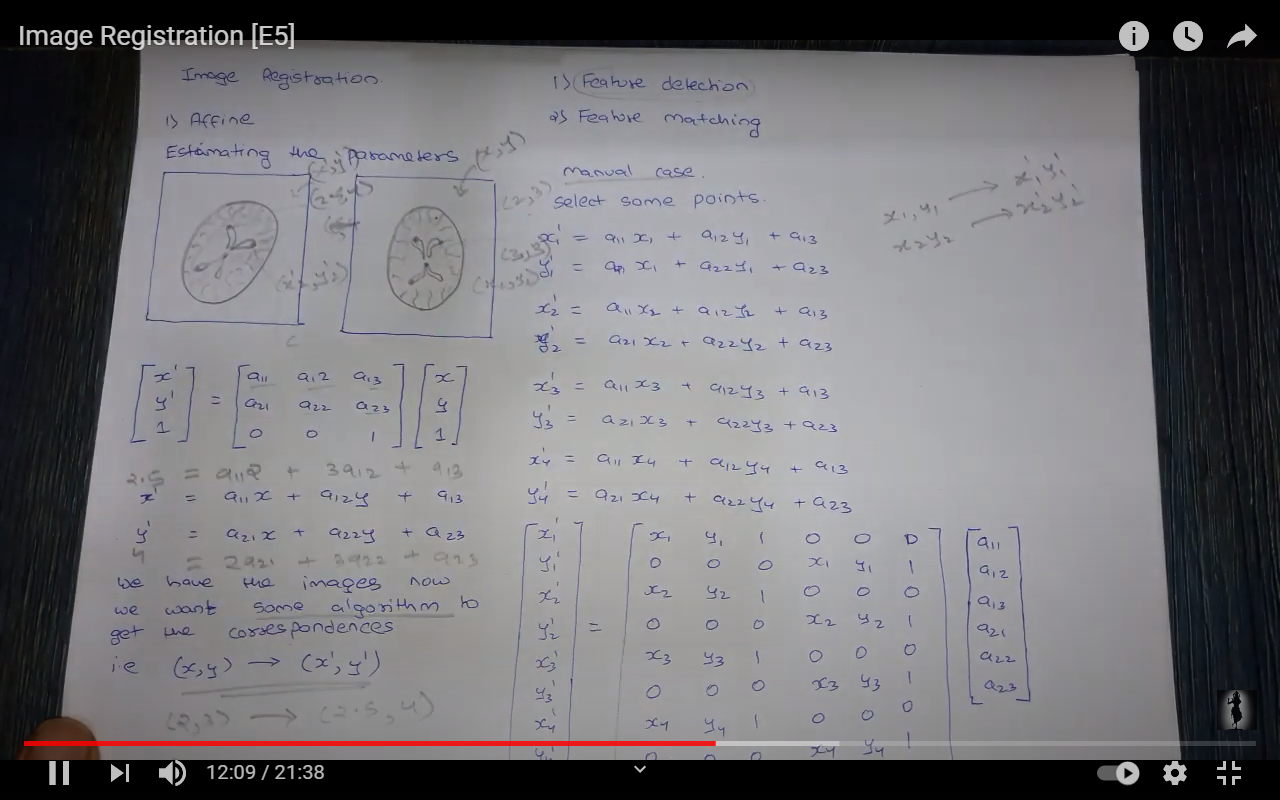 Image Registration [E5]
Image Registration
1) Affine
Estimating the parameters
(x, y)
(2, 3)
(2.5, 4)
(3, 3)
[x' y' 1] = [a11 a12 a13 a21 a22 a23 0 0 1] [x y 1]
2.5 = a11 2 + 3a12 + a13
x' = a11 x + a12 y + a13
y' = a21 x + a22 y + a23
4 = 2a21 + 3a22 + a23
we have the images now
we want some algorithm to
get the correspondences
i.e (x,y) → (x', y')
(2,3) → (2.5, 4)
1) Feature detection
2) Feature matching
manual case.
select some points.
x1' = a11 x1 + a12 y1 + a13
y1' = a21 x1 + a22 y1 + a23
x2' = a11 x2 + a12 y2 + a13
y2' = a21 x2 + a22 y2 + a23
x3' = a11 x3 + a12 y3 + a13
y3' = a21 x3 + a22 y3 + a23
x4' = a11 x4 + a12 y4 + a13
y4' = a21 x4 + a22 y4 + a23
x1' x1 y1 1 0 0 0 a11
y1' 0 0 0 x1 y1 1 a12
x2' x2 y2 1 0 0 0 a13
y2' = 0 0 0 x2 y2 1 a21
x3' x3 y3 1 0 0 0 a22
y3' 0 0 0 x3 y3 1 a23
x4' x4 y4 1 0 0 0
y4' 0 0 0 x4 y4 1
x1, y1 → x1' y1'
x2 y2 → x2' y2'
12:09 / 21:38